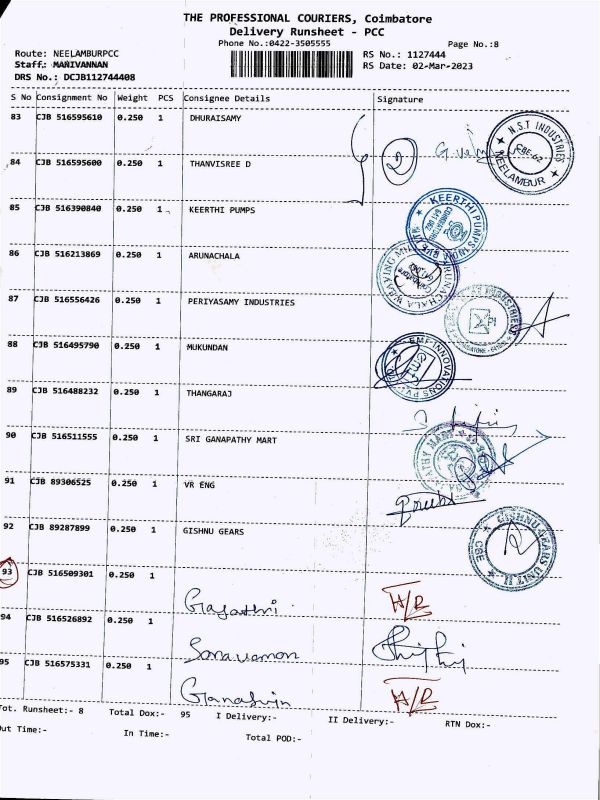 THE PROFESSIONAL COURIERS, Coimbatore
Delivery Runsheet - PCC
Phone No.:0422-3505555 Page No.:8
Route: NEELAMBURPCC RS No.: 1127444
Staff: MANIVANNAN RS Date: 02-Mar-2023
DRS No.: DCJB112744408
S No Consignment No Weight PCS Consignee Details Signature
83 CJB 516595610 0.250 1 DHURAISAMY
N.S.T INDUSTRIES CBE-62 NEELAMBUR
84 CJB 516595600 0.250 1 THANVISREE D
2
85 CJB 516390840 0.250 1 KEERTHI PUMPS
KEERTHI PUMPS
86 CJB 516213869 0.250 1 ARUNACHALA
87 CJB 516556426 0.250 1 PERIYASAMY INDUSTRIES
88 CJB 516495790 0.250 1 MUKUNDAN
89 CJB 516488232 0.250 1 THANGARAJ
90 CJB 516511555 0.250 1 SRI GANAPATHY MART
91 CJB 89306525 0.250 1 VR ENG
92 CJB 89287899 0.250 1 GISHNU GEARS
GISHNU GEARS UNIT II CBE
93 CJB 516509301 0.250 1
Gayathri A/R
94 CJB 516526892 0.250 1
Saravanan
95 CJB 516575331 0.250 1
A/R
Tot. Runsheet:- 8 Total Dox:- 95 I Delivery:- II Delivery:- RTN Dox:-
Out Time:- In Time:- Total POD:-